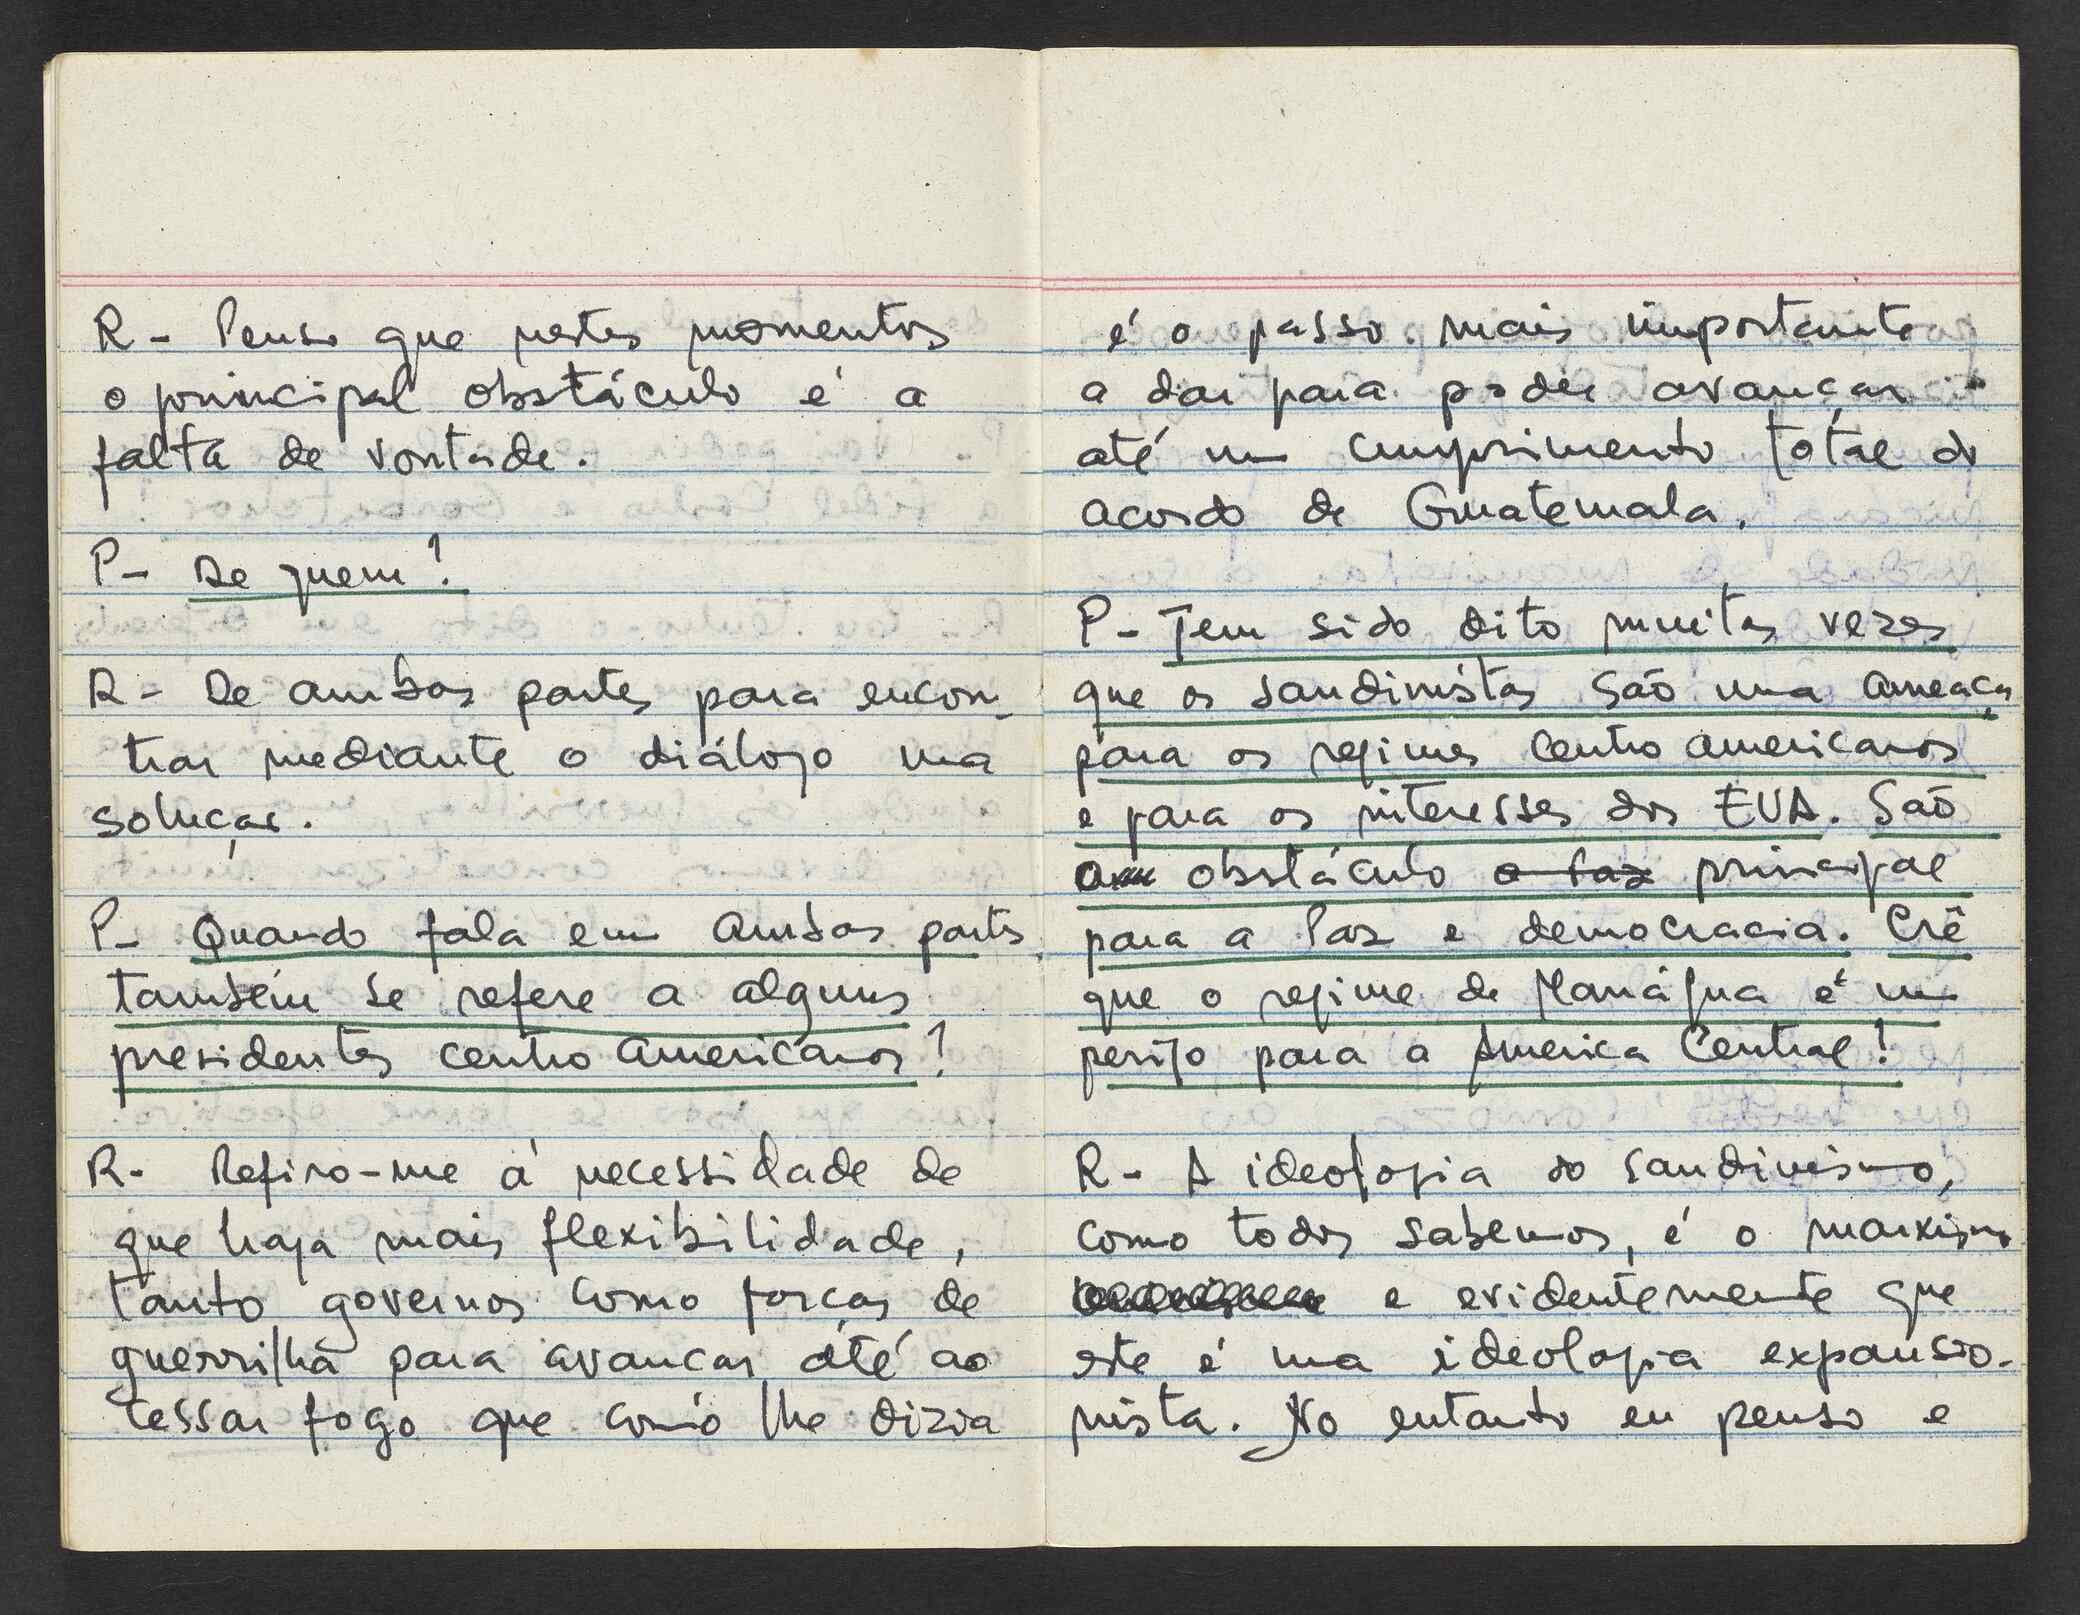 R - Penso que nestes momentos
o principal obstáculo é a
falta de vontade.
P - De quem?
R - De ambas partes para encon-
trar mediante o diálogo uma
solução.
P - Quando fala em ambas partes
também se refere a alguns
presidentes centro americanos?
R - Refiro-me á necessidade de
que haja mais flexibilidade,
tanto governos como forças de
guerrilha para avancar até ao
cessar fogo que como lhe dizia
é o passo mais importante
a dar para poder avançar
até um cumprimento total do
acordo de Guatemala.
P - Tem sido dito muitas vezes
que os sandinistas são uma ameaça
para os regimes centro americanos
e para os interesses dos EUA. São
obstáculo o faz principal
para a Paz e democracia. Crê
que o regime de Manágua é um
perigo para a America Central?
R - A ideologia do sandinismo,
como todos sabemos, é o marxismo
e evidentemente que
este é uma ideologia expansio-
nista. No entanto eu penso e